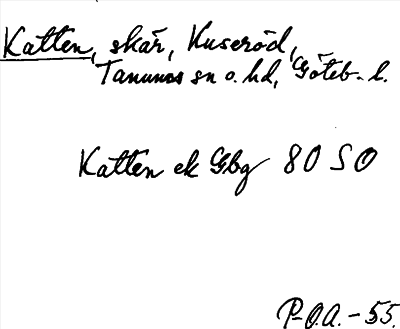 Katten, skär, Kuseröd,
Tanums sn o. hd, Göteb. l.
Katten ek Gbg 80 SO
P-O.A. - 55.